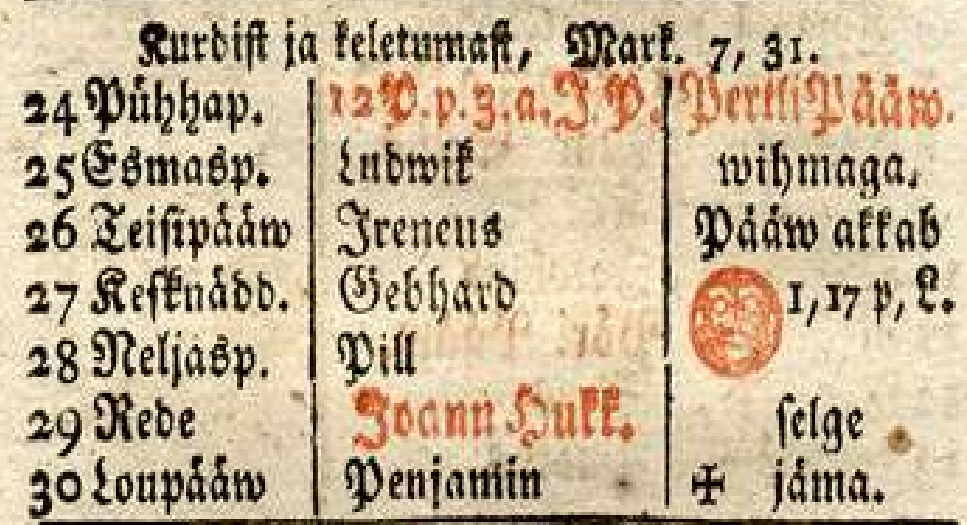 Kurdist ja keletumast, Mark. 7, 31.
24 Pühhap. 12 P. p. 3. a. J. P. Pertli Pääw.
25 Esmasp. Ludwik wihmaga.
26 Teisipääw Ireneus Pääw akkab
27 Kesknädd. Gebhard 1, 17 p, L.
28 Neljasp. Pill
29 Rede Joann Hukk. selge
30 Loupääw Penjamin ✠ jäma.